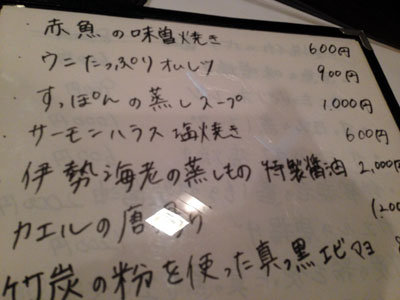 ・赤魚の味噌焼き 600円
・ウニたっぷりオムレツ 900円
・すっぽんの蒸しスープ 1,000円
・サーモンハラス塩焼き 600円
伊勢海老の蒸しもの 特製醤油 2,000円
カエルの唐
竹炭の粉を使った真っ黒エビマヨ